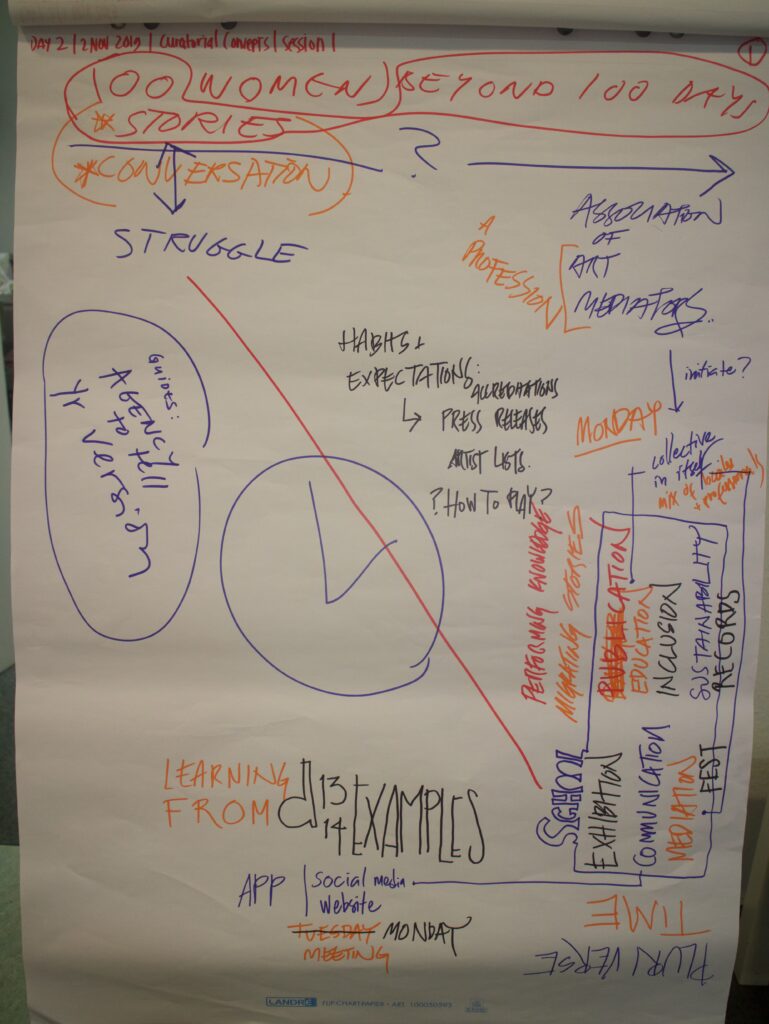 DAY 2 | 2 NOV 2019 | Curatorial Concepts | Session 1
1
100 WOMEN BEYOND 100 DAYS
*STORIES
?
*CONVERSATION
STRUGGLE
ASSOCIATION
OF
ART
MEDIATORS.
A
PROFESSION
initiate?
HABITS +
EXPECTATIONS:
ACCREDITATIONS
↳ PRESS RELEASES
ARTIST LISTS.
? HOW TO PLAY?
MONDAY
collective
in itself
mix of locals
+ professionals
GUIDES:
AGENCY
to tell
yr version
PERFORMING KNOWLEDGE
MIGRATING STORIES
EDUCATION
INCLUSION
SUSTAINABILITY
RECORDS
SCHOOL
EXHIBITION
COMMUNICATION
MEDIATION
FEST
LEARNING
FROM d 13
14 EXAMPLES
APP | Social media
Website
TUESDAY MONDAY
MEETING
TIME
PLURIVERSE
LANDRÉ FLIP-CHART-PAPIER • ART.